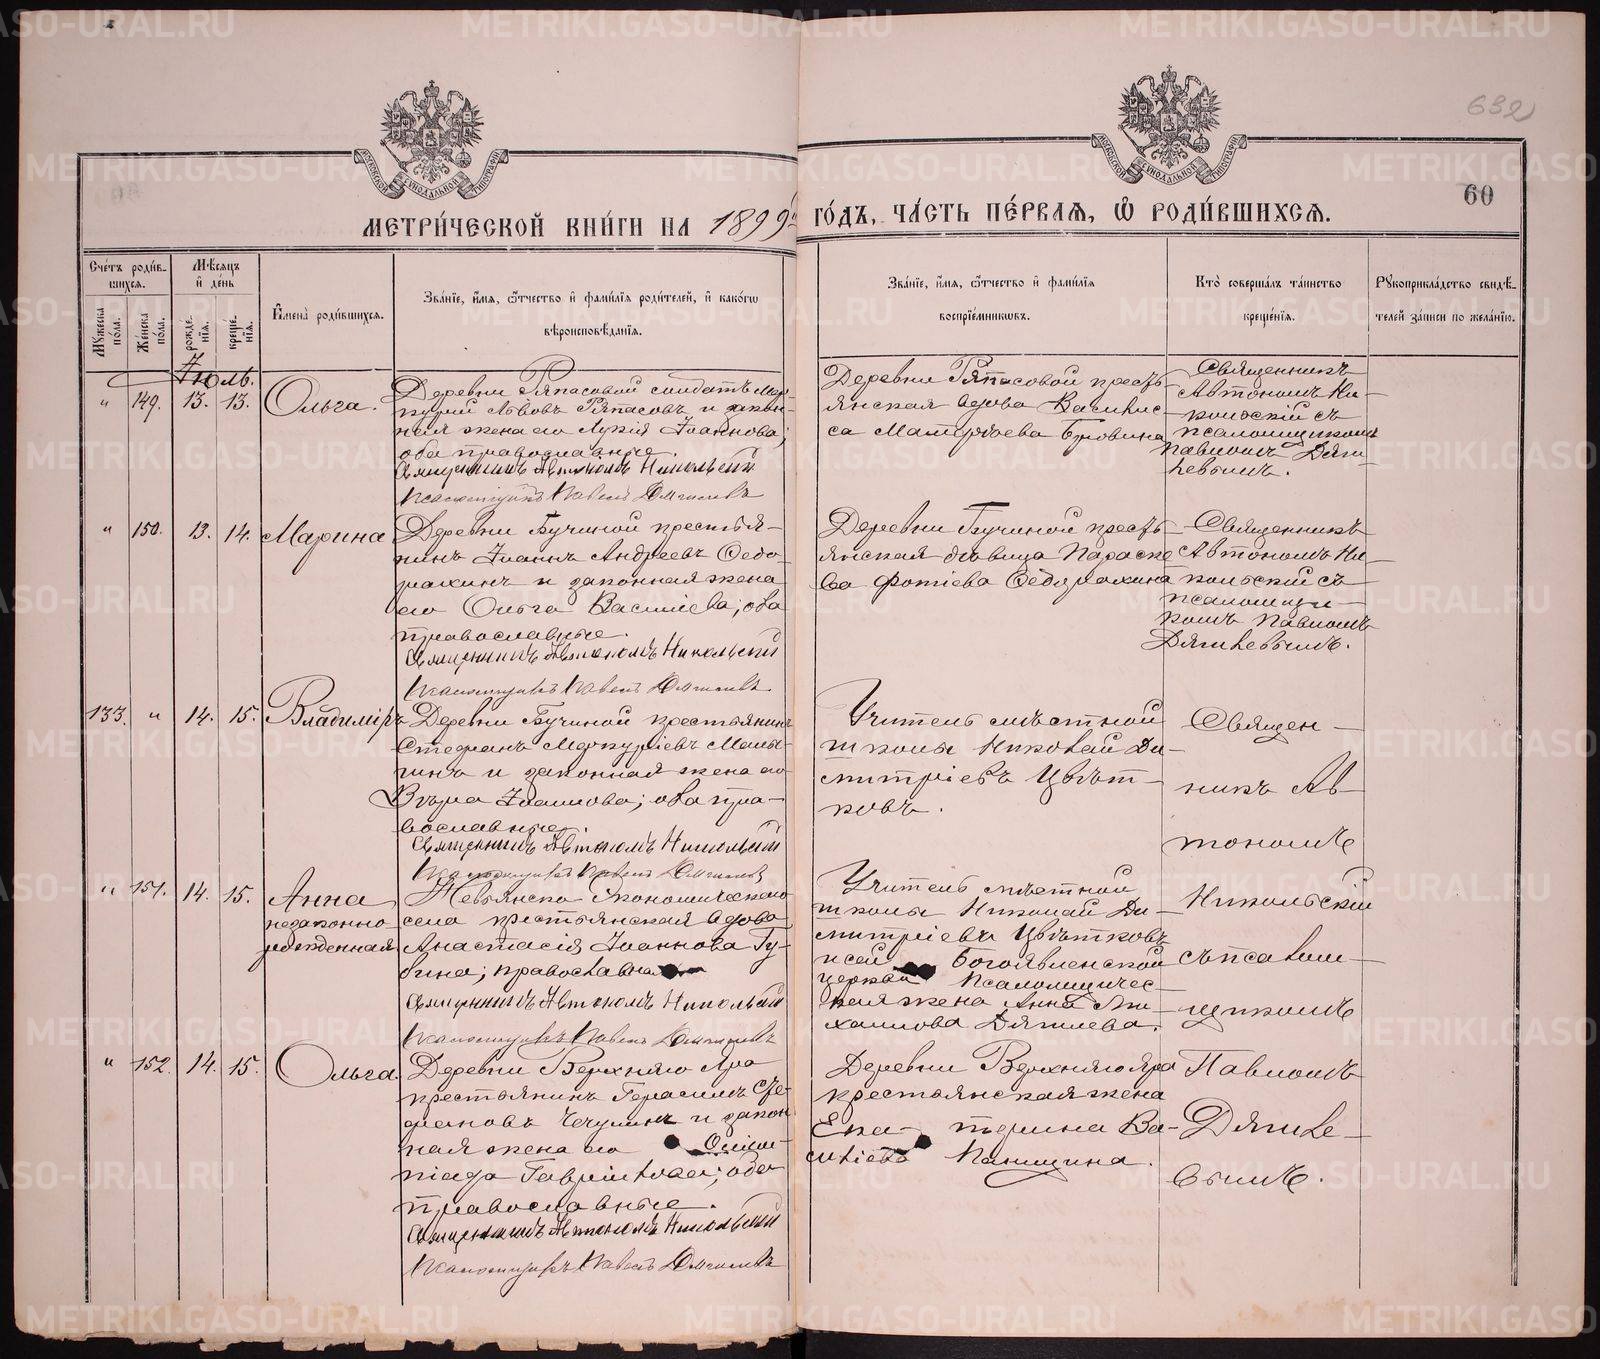 632
60
МЕТРИЧЕСКОЙ КНИГИ НА 1899й ГОДЪ, ЧАСТЬ ПЕРВАЯ, Ѡ РОДИВШИХСЯ.
Счетъ родив-
шихся.
Мужеска
пола.
Женска
пола.
Мѣсяцъ
и день
рожде-
нія.
креще-
нія.
Имена родившихся.
Званіе, имя, отчество и фамилія родителей, и какогѡ
вѣроисповѣданія.
Званіе, имя, отчество и фамилія
воспріемниковъ.
Кто совершалъ таинство
крещенія.
Рукоприкладство свидѣ-
телей записи по желанію.
Іюль.
" 149. 13. 13. Ольга.
Деревни Ряпасовой солдатъ Мер-
курій Львовъ Ряпасовъ и закон-
ная жена его Лукія Іоаннова;
оба православные.
Священникъ Автономъ Никольскій
Псаломщикъ Павелъ Дягилевъ
Деревни Ряпасовой кресть-
янская вдова Василис-
са Матѳеева Бровина
Священникъ
Автономъ Ни-
кольскій съ
псаломщикомъ
Павломъ Дяги-
левымъ.
" 150. 13. 14. Марина
Деревни Бучиной крестья-
нинъ Іоаннъ Андреевъ Ѳедо-
рахинъ и законная жена
его Ольга Васильева; оба
православные.
Священникъ Автономъ Никольскій
Псаломщикъ Павелъ Дягилевъ
Деревни Бучиной кресть-
янская дѣвица Параске-
ва Фотіева Ѳедорахина
Священникъ
Автономъ Ни-
кольскій съ
псаломщи-
комъ Павломъ
Дягилевымъ.
133. " 14. 15. Владиміръ
Деревни Бучиной крестьянинъ
Стефанъ Меркуріевъ Малы-
гинъ и законная жена его
Вѣра Іоаннова; оба пра-
вославные.
Священникъ Автономъ Никольскій
Псаломщикъ Павелъ Дягилевъ
Учитель мѣстной
школы Николай Ди-
митріевъ Цвѣт-
ковъ.
Священ-
никъ Ав-
тономъ
" 151. 14. 15. Анна
незаконно
рожденная
Невьянско Экономическаго
села крестьянская вдова
Анастасія Іоаннова Гу-
бина; православна
Священникъ Автономъ Никольскій
Псаломщикъ Павелъ Дягилевъ
Учитель мѣстной
школы Николай Ди-
митріевъ Цвѣтковъ
и сей Богоявленской
церкви Псаломщичес-
кая жена Анна Ми-
хаилова Дягилева.
Никольскій
съ псалом-
щикомъ
" 152. 14. 15. Ольга
Деревни Верхняго Яра
крестьянинъ Герасимъ Сте-
фановъ Чечулинъ и закон-
ная жена его Олим-
піада Гавріилова; оба
православные.
Священникъ Автономъ Никольскій
Псаломщикъ Павелъ Дягилевъ
Деревни Верхняго Яра
крестьянская жена
Ека- терина Ва-
силіева Паншина.
Павломъ
Дягиле-
вымъ.